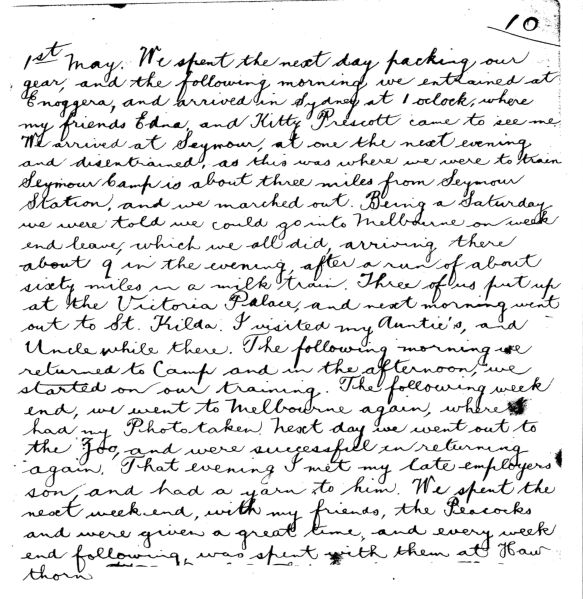 10
1st May. We spent the next day packing our
gear, and the following morning we entrained at
Enoggera, and arrived in Sydney at 1 oclock, where
my friends Edna, and Kitty Prescott came to see me.
We arrived at Seymour, at one the next evening
and disentrained, as this was where we were to train
Seymour Camp is about three miles from Seymour
Station, and we marched out. Being a Saturday
we were told we could go into Melbourne on week
end leave, which we all did, arriving there
about 9 in the evening, after a run of about
sixty miles in a milk train. Three of us put up
at the Victoria Palace, and next morning went
out to St. Kilda. I visited my Auntie's, and
Uncle while there. The following morning we
returned to Camp and in the afternoon, we
started on our training. The following week
end, we went to Melbourne again, where I
had my Photo taken Next day we went out to
the Zoo, and were successful in returning
again. That evening I met my late employers
son, and had a yarn to him. We spent the
next week-end, with my friends, the Peacocks
and were given a great time, and every week
end following, was spent with them at Haw
thorn